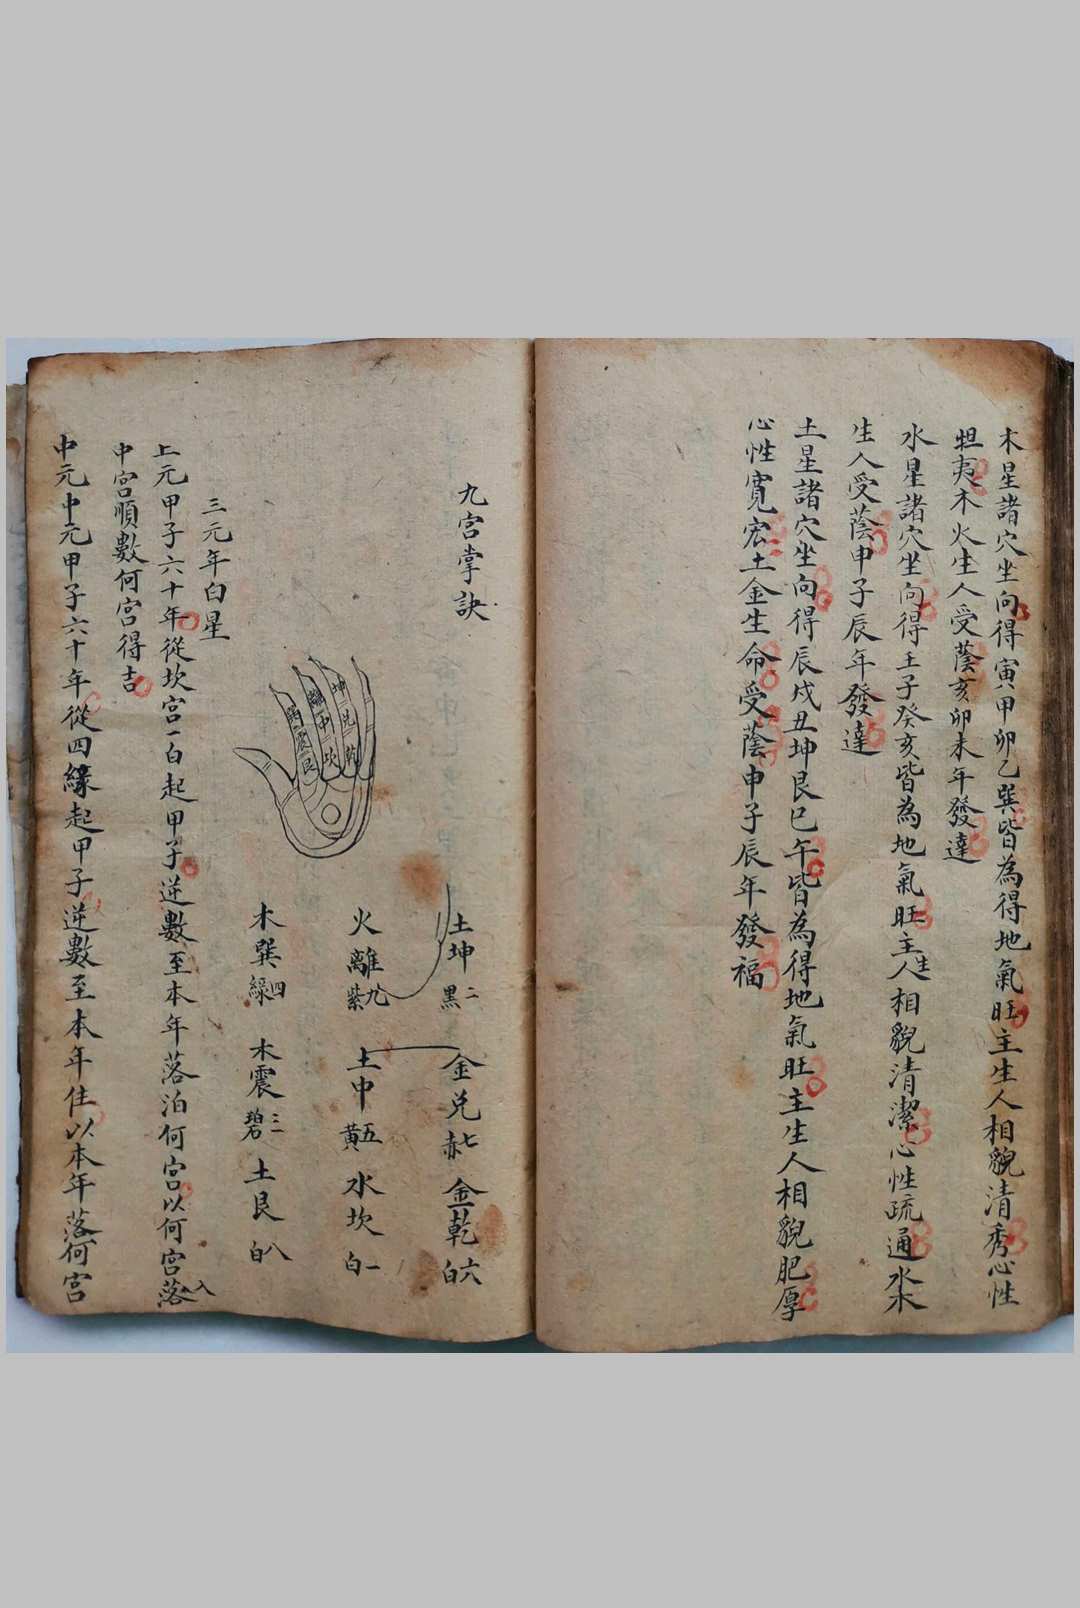 木星諸穴坐向得寅甲卯乙巽皆為得地氣旺主生人相貌清秀心性
坦夷木火生人受蔭亥卯未年發達
水星諸穴坐向得壬子癸亥皆為地氣旺主生人相貌清潔心性疏通水木
生人受蔭申子辰年發達
土星諸穴坐向得辰戌丑坤艮巳午皆為得地氣旺主生人相貌肥厚
心性寬宏土金生命受蔭申子辰年發福
九宮掌訣
坤 兌 乾
離 中 坎
震 艮
土坤二黑 金兌七赤 金乾六白
火離九紫 土中五黃 水坎一白
木巽四綠 木震三碧 土艮八白
三元年白星
上元甲子六十年從坎宮一白起甲子逆數至本年落泊何宮以何宮落入
中宮順數何宮得吉
中元中元甲子六十年從四緣起甲子逆數至本年住以本年落何宮